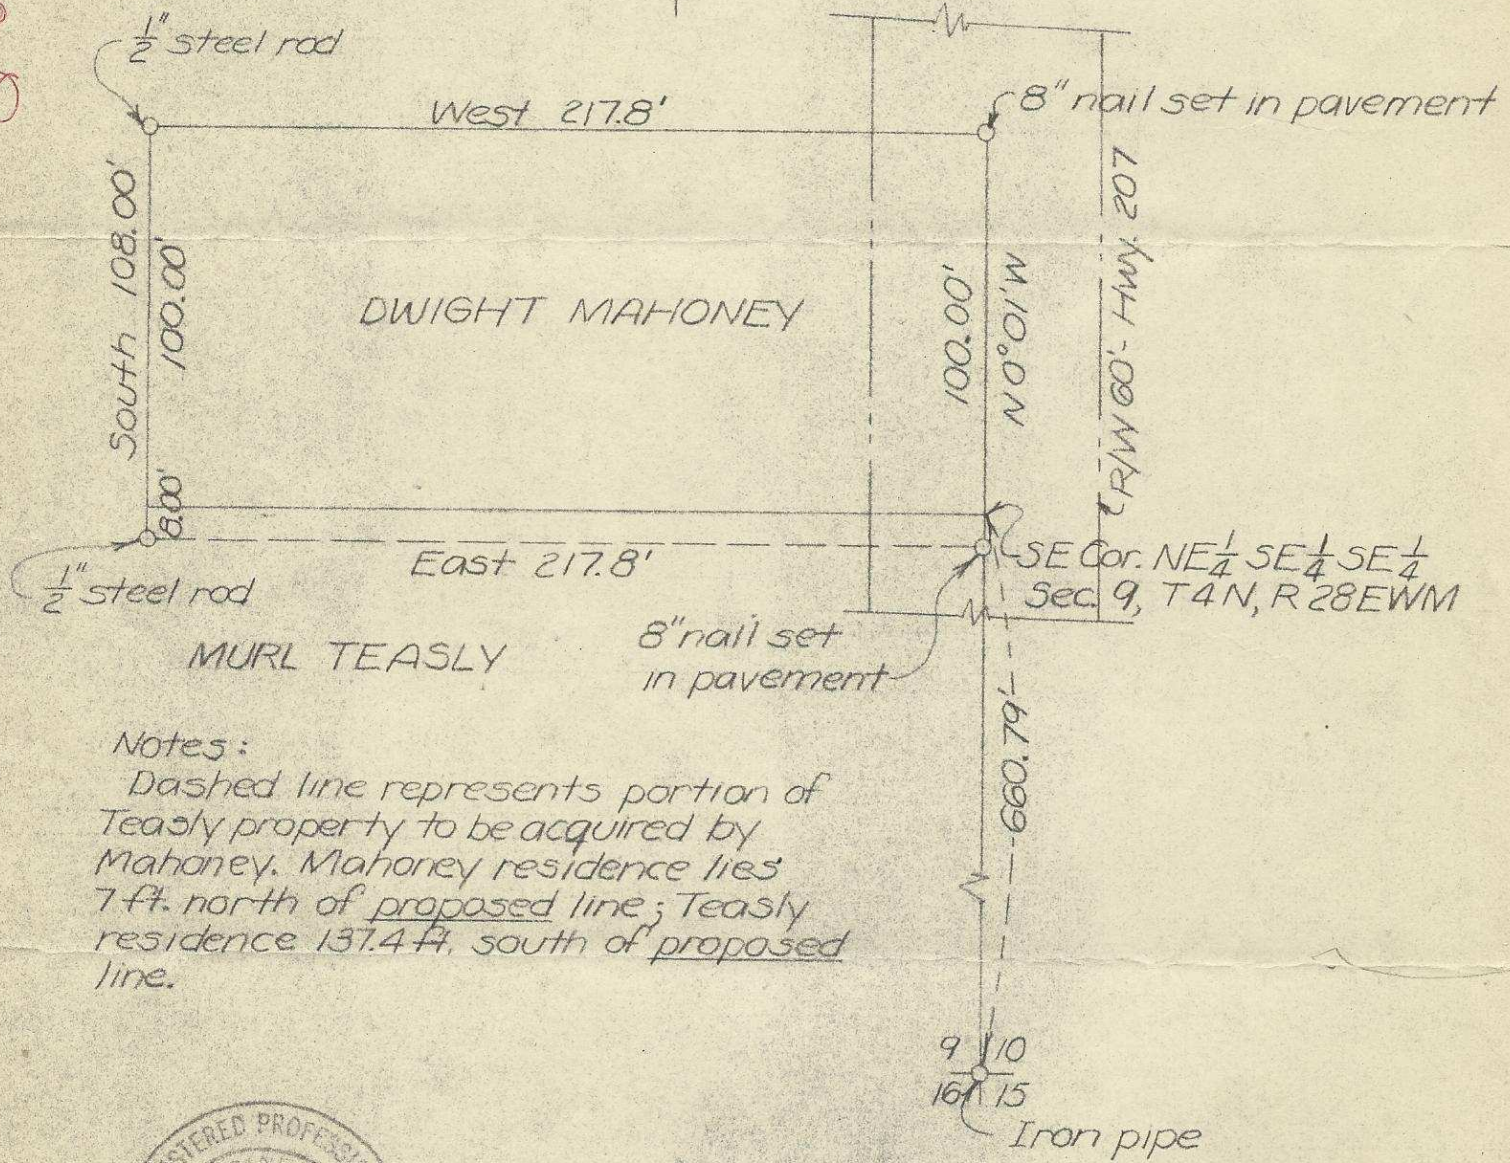 1/2" steel rod
West 217.8'
8" nail set in pavement
South 108.00'
100.00'
DWIGHT MAHONEY
100.00'
N 0°01'W
R/W 60'- Hwy. 207
8.00'
East 217.8'
1/2" steel rod
SE Cor. NE 1/4 SE 1/4 SE 1/4
Sec. 9, T4N, R28EWM
MURL TEASLY
8" nail set
in pavement
660.79'
Notes:
Dashed line represents portion of
Teasly property to be acquired by
Mahoney. Mahoney residence lies
7 ft. north of proposed line; Teasly
residence 137.4 ft. south of proposed
line.
9 10
16 15
Iron pipe